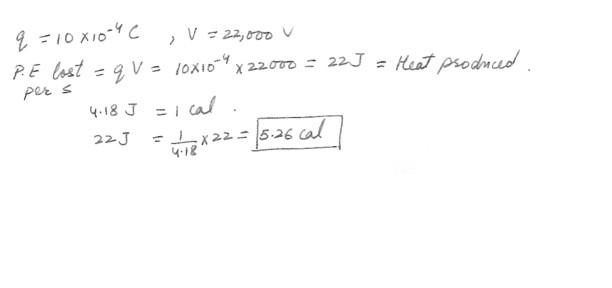 q = 10 × 10⁻⁴ C , V = 22,000 V
P.E lost = q V = 10×10⁻⁴ × 22000 = 22 J = Heat produced .
per s
4.18 J = 1 cal .
22 J = 1/4.18 × 22 = 5.26 cal